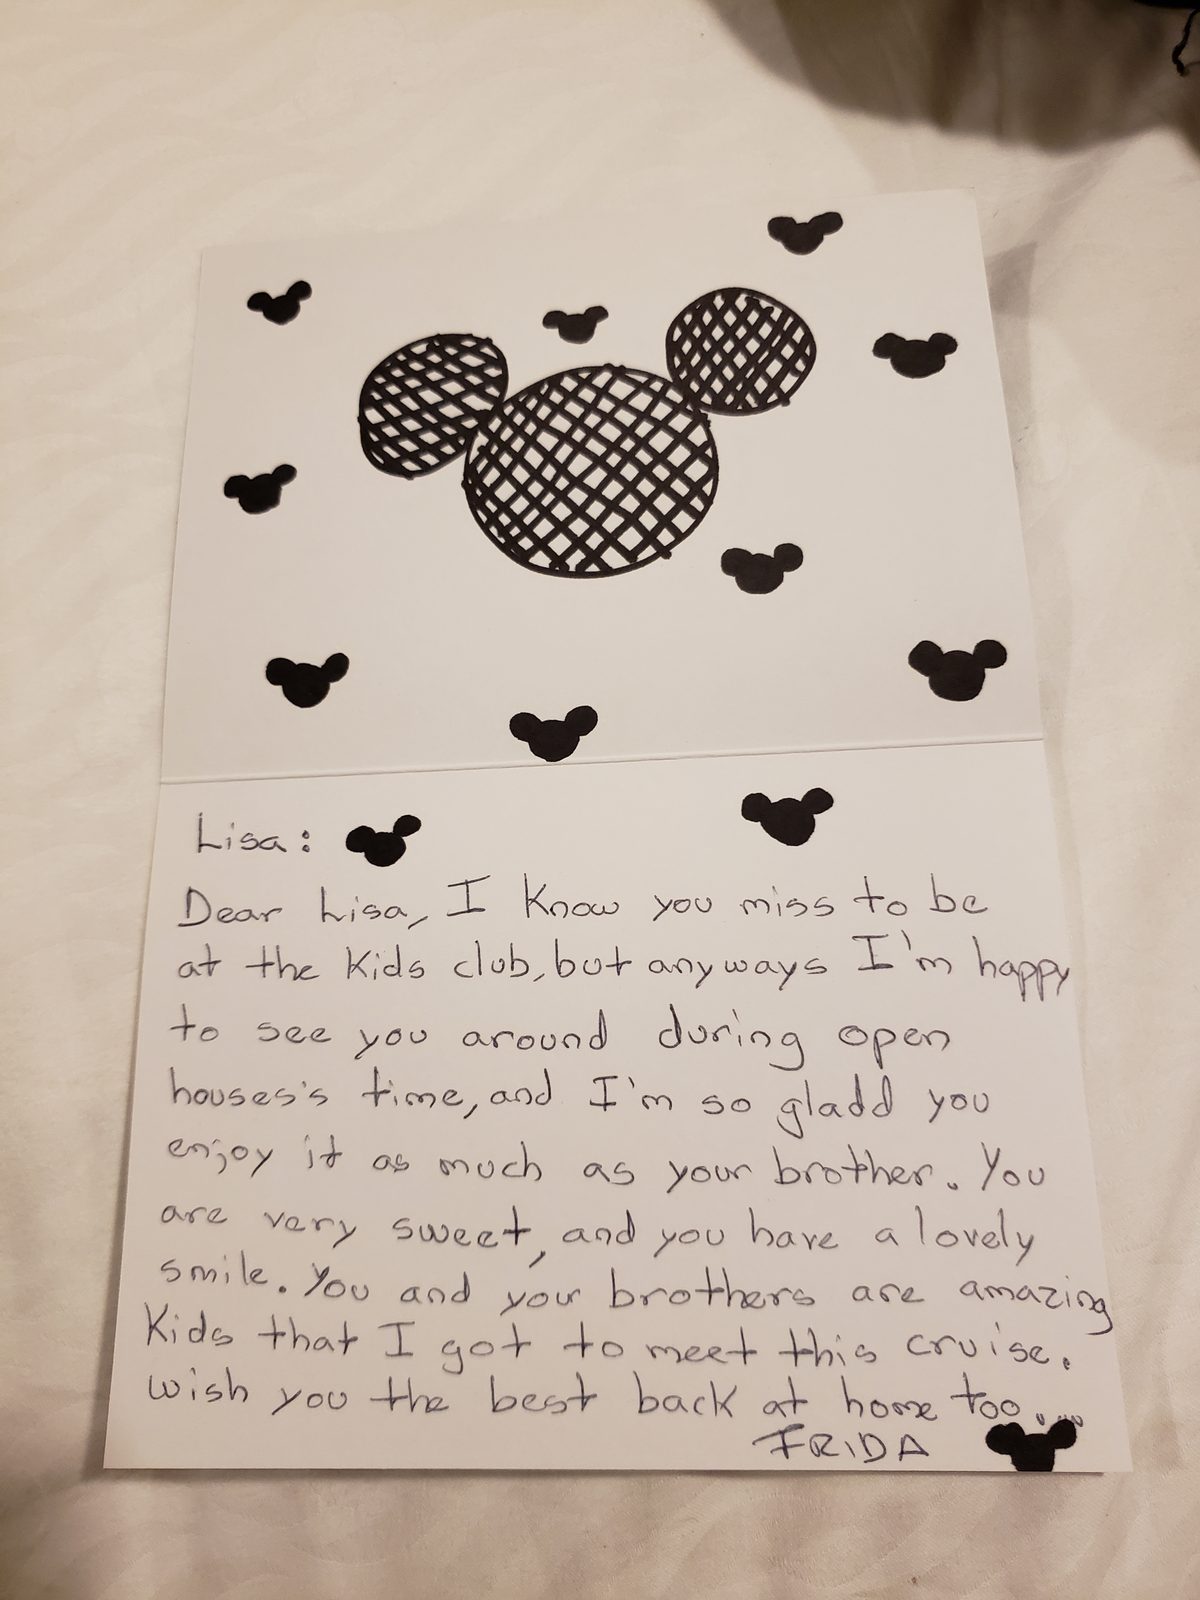 Lisa:
Dear Lisa, I know you miss to be
at the kids club, but anyways I'm happy
to see you around during open
houses's time, and I'm so gladd you
enjoy it as much as your brother. You
are very sweet, and you have a lovely
smile. You and your brothers are amazing
kids that I got to meet this cruise.
wish you the best back at home too....
FRIDA